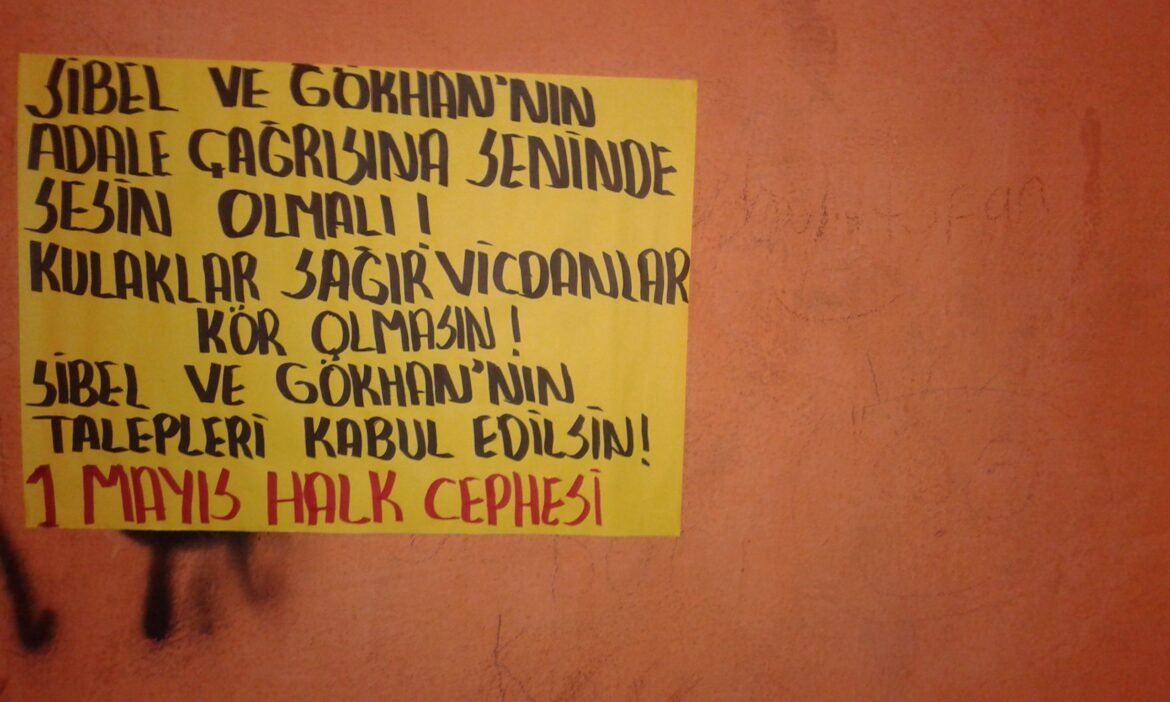 SİBEL VE GÖKHAN'NIN
ADALE ÇAĞRISINA SENİNDE
SESİN OLMALI!
KULAKLAR SAĞIR VİCDANLAR
KÖR OLMASIN!
SİBEL VE GÖKHAN'NIN
TALEPLERİ KABUL EDİLSİN!
1 MAYIS HALK CEPHESİ